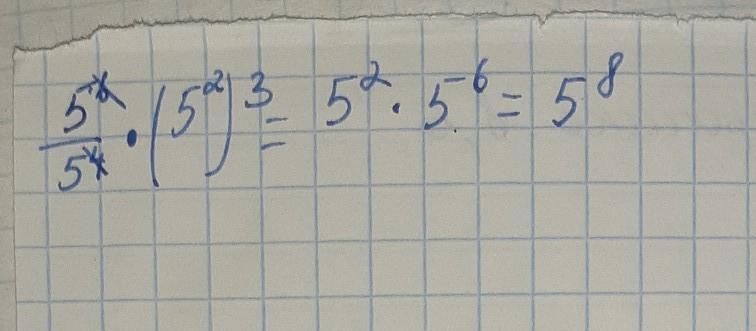 5⁶/5⁴ · (5²)³ = 5² · 5⁻⁶ = 5⁸